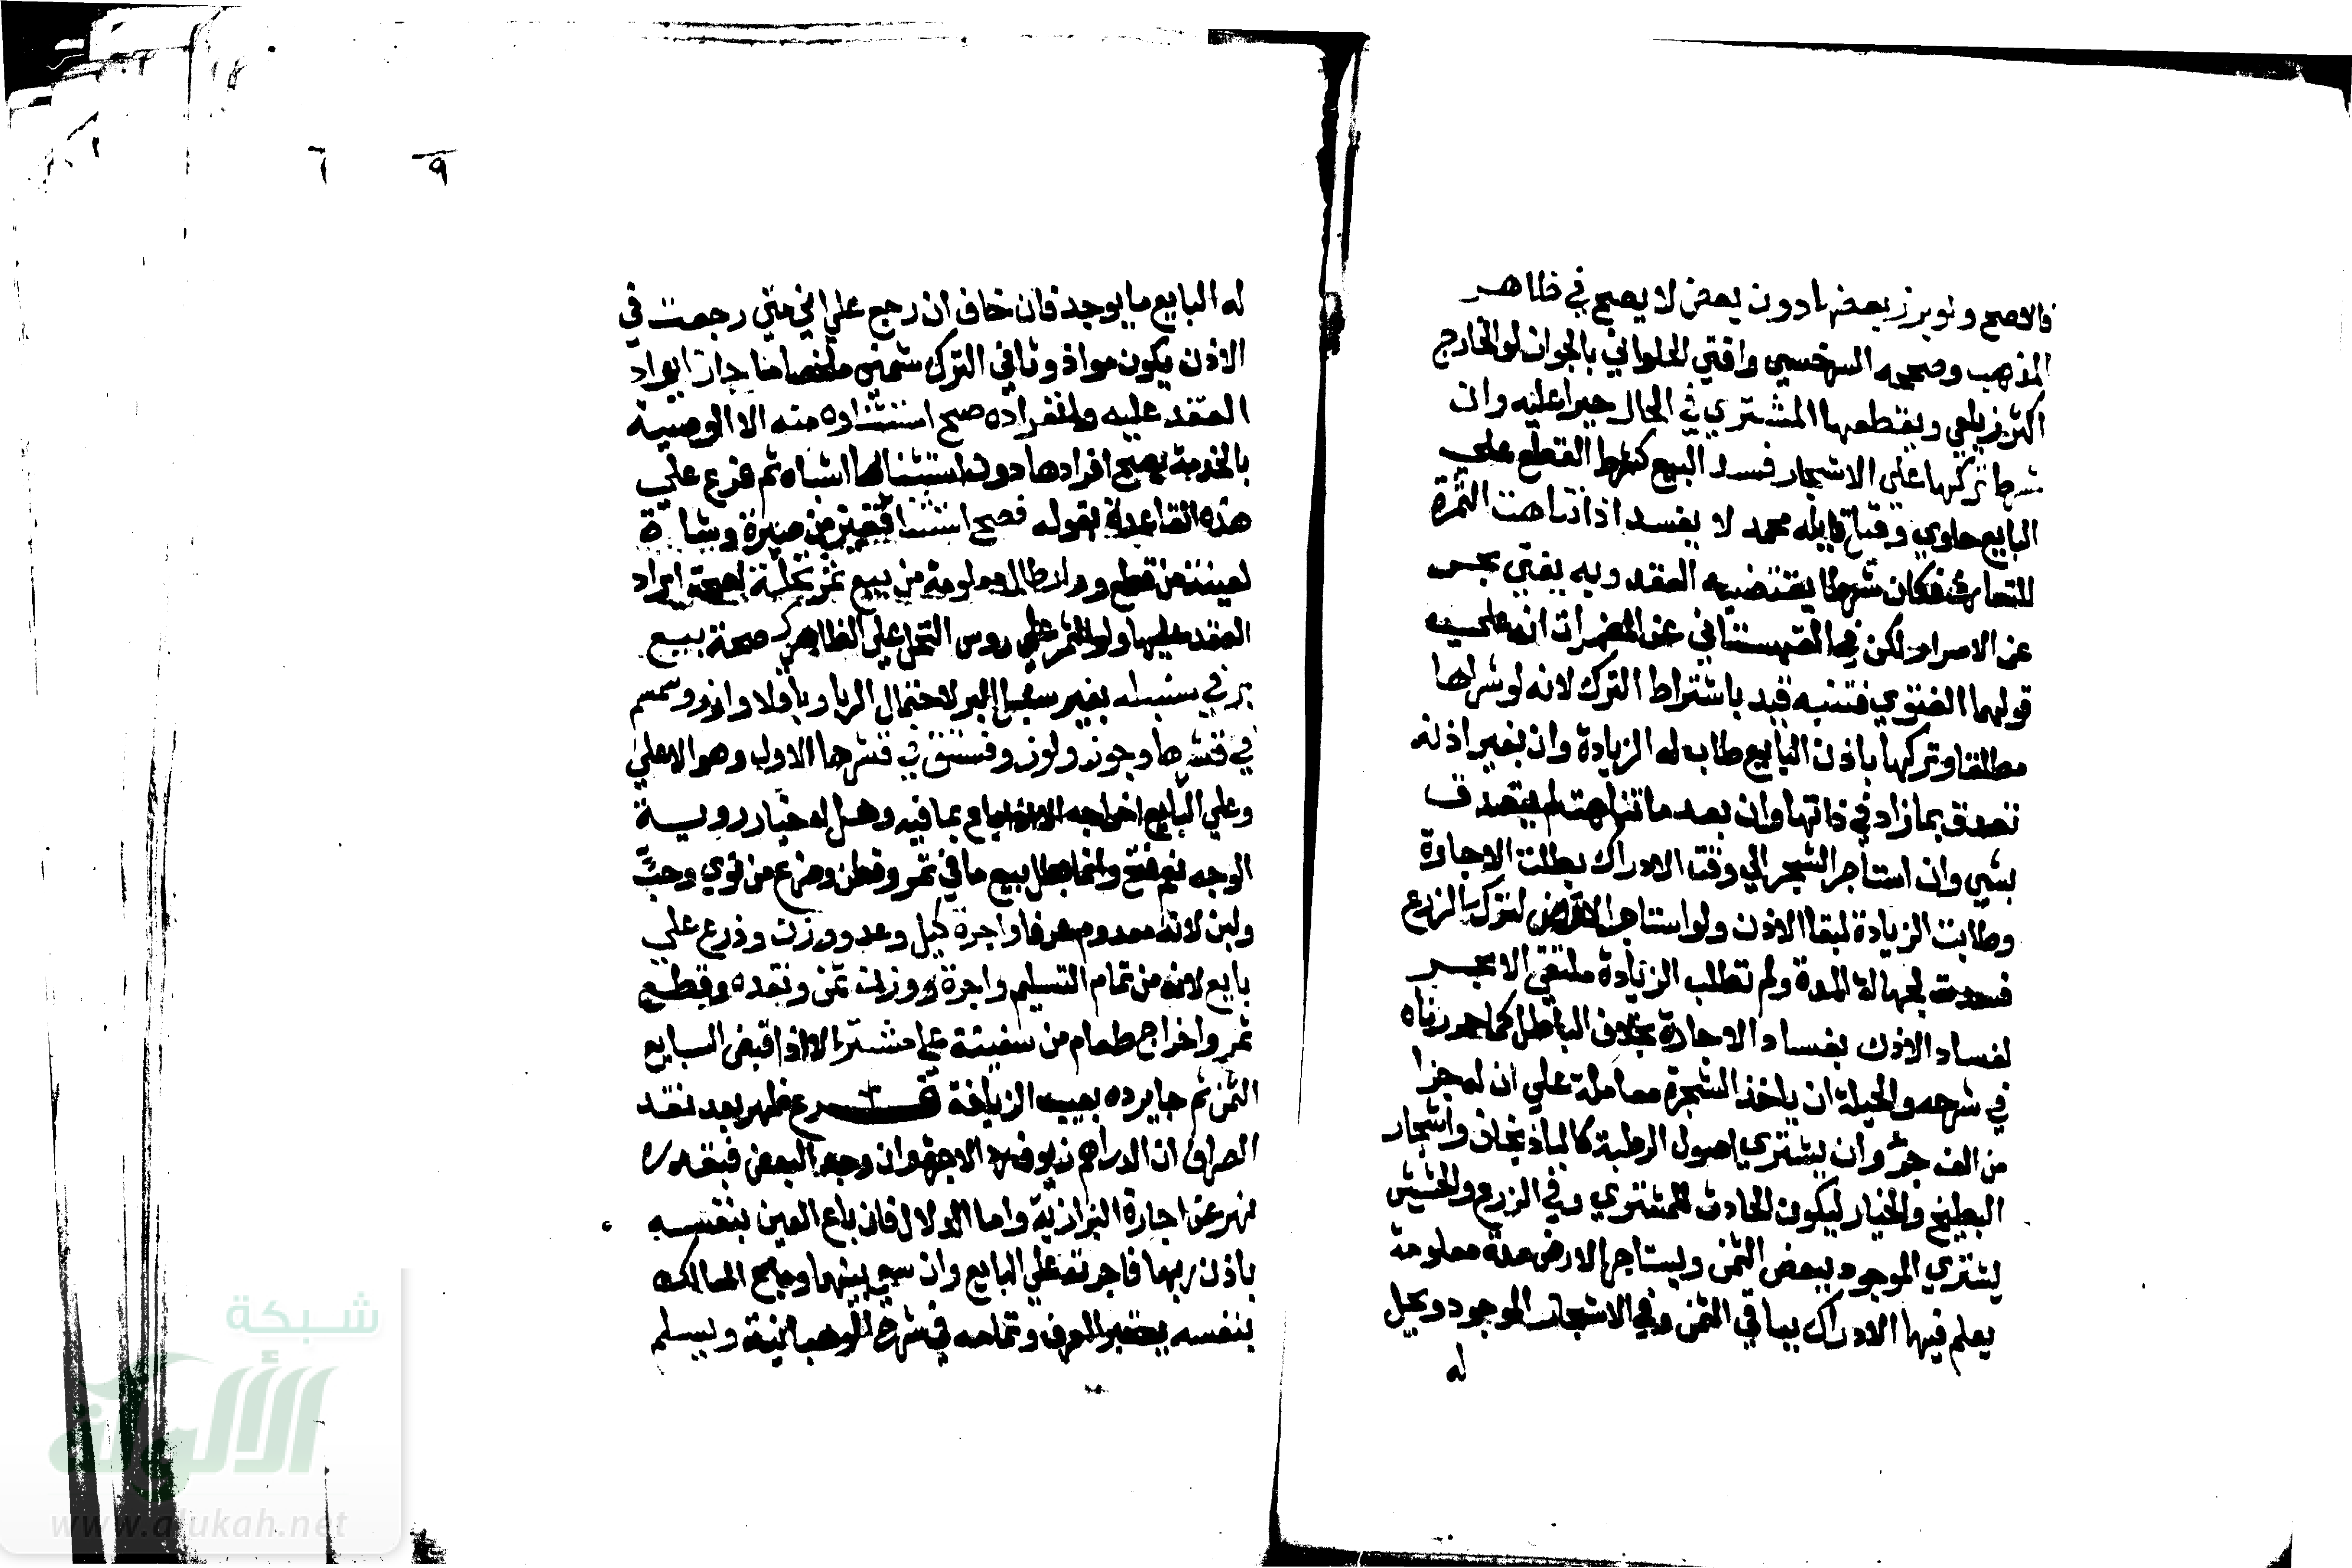 فالاصح ولو برز بعضها دون بعض لا يصح في ظاهر
المذهب وصححه السرخسي وافتي الحلواني بالجواز لو الخارج
اكثر زيلعي ويقطعها المشتري في الحال جبرا عليه وان
شرط تركها علي الاشجار فسد البيع كشرط القطع علي
البايع حاوي وقيل قايله محمد لا يفسد اذا تناهت الثمرة
للتعارف فكان شرطا يقتضيه العقد وبه يفتي بحر
عن الاسرار لكن في القهستاني عن المضمرات انه علي
قولهما الفتوي فتنبه قيد باشتراط الترك لانه لو شراها
مطلقا وتركها باذن البايع طاب له الزيادة وان بغير اذنه
تصدق بما زاد في ذاتها وان بعد ما تناهت لم يتصدق
بشي وان استاجر الشجر الي وقت الادراك بطلت الاجارة
وطابت الزيادة لبقا الاذن ولو استاجر الارض لترك الزرع
فسدت لجهالة المدة ولم تطلب الزيادة ملتقي الابحر
لفساد الاذن بفساد الاجارة بخلاف الباطل كما حررناه
في شرحه والحيلة ان ياخذ الشجرة معاملة علي ان له جزا
من الف جزؤ وان يشتري اصول الرطبة كالباذنجان واشجار
البطيخ والخيار ليكون الحادث للمشتري وفي الزرع والحشيش
يشتري الموجود ببعض الثمن ويستاجر الارض مدة معلومة
يعلم فيها الادراك بباقي الثمن وفي الاشجار الموجود ويحل
له
٦ ٩
له البايع ما يوجد فان خاف ان رجع علي اني متي رجعت في
الاذن يكون ماذونا في الترك شمني ملخصا ما جاز ايراد
العقد عليه بانفراده صح استثناوه منه الا الوصية
بالخدمة يصح افرادها دون استثنائها اشباه ثم فرع علي
هذه القاعدة بقوله فصح استثنا قفيز من صبرة وشاة
لعينة من قطع وارطال معلومة من بيع ثمر نخلة لصحة ايراد
العقد عليها ولو الثمر علي روس النخل علي الظاهر كصحة بيع
بر في سنبله بغير سنبل البر لاحتمال الربا وباقلا وارز وسمسم
في قشرها وجوز ولوز وفستق في قشرها الاول وهو الاعلي
وعلي البايع اخراجه الا اذا باع بما فيه وهل له خيار روية
الوجه نعم فتح وانما بطل بيع ما في تمر وقطن وضرع من نوي وحب
ولبن لانه معدوم عرفا واجرة كيل وعد ووزن وذرع علي
بايع لانه من تمام التسليم واجرة ووزن ثمن ونقده وقطع
ثمر واخراج طعام من سفينة علي مشتر الا اذا قبض البايع
الثمن ثم جا يرده بعيب الزيافة فرع ظهر بعد نقد
الصراف ان الدراهم زيوف رد الاجرة وان وجد البعض فبقدره
نهر عن اجارة البزازية واما الدلال فان باع العين بنفسه
باذن ربها فاجرته علي البايع وان سعي بينهما وباع المالك
بنفسه يعتبر العرف وتمامه في شرح الوهبانية ويسلم
شبكة
الألوكة
www.alukah.net